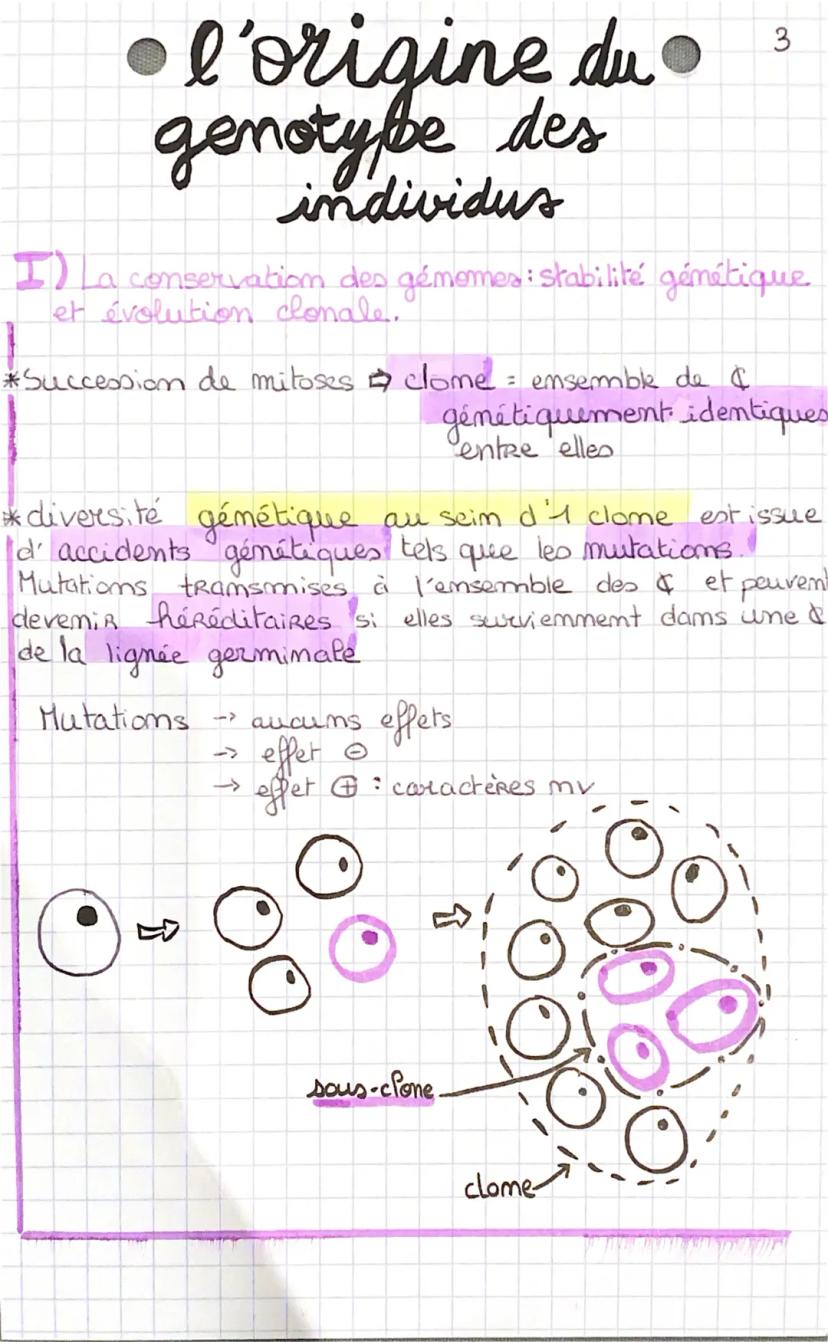 3
l'origine du
genotype des
individus
I) La conservation des génomes : stabilité génétique
et évolution clonale.
*Succession de mitoses ⇨ clone = ensemble de ₵
génétiquement identiques
entre elles
* diversité génétique au sein d'1 clone est issue
d'accidents génétiques tels que les mutations.
Mutations transmises à l'ensemble des ₵ et peuvent
devenir héréditaires si elles surviennent dans une ₵
de la lignée germinale
Mutations -> aucuns effets
-> effet ⊖
-> effet ⊕ : caractères nv
sous-clone
clone